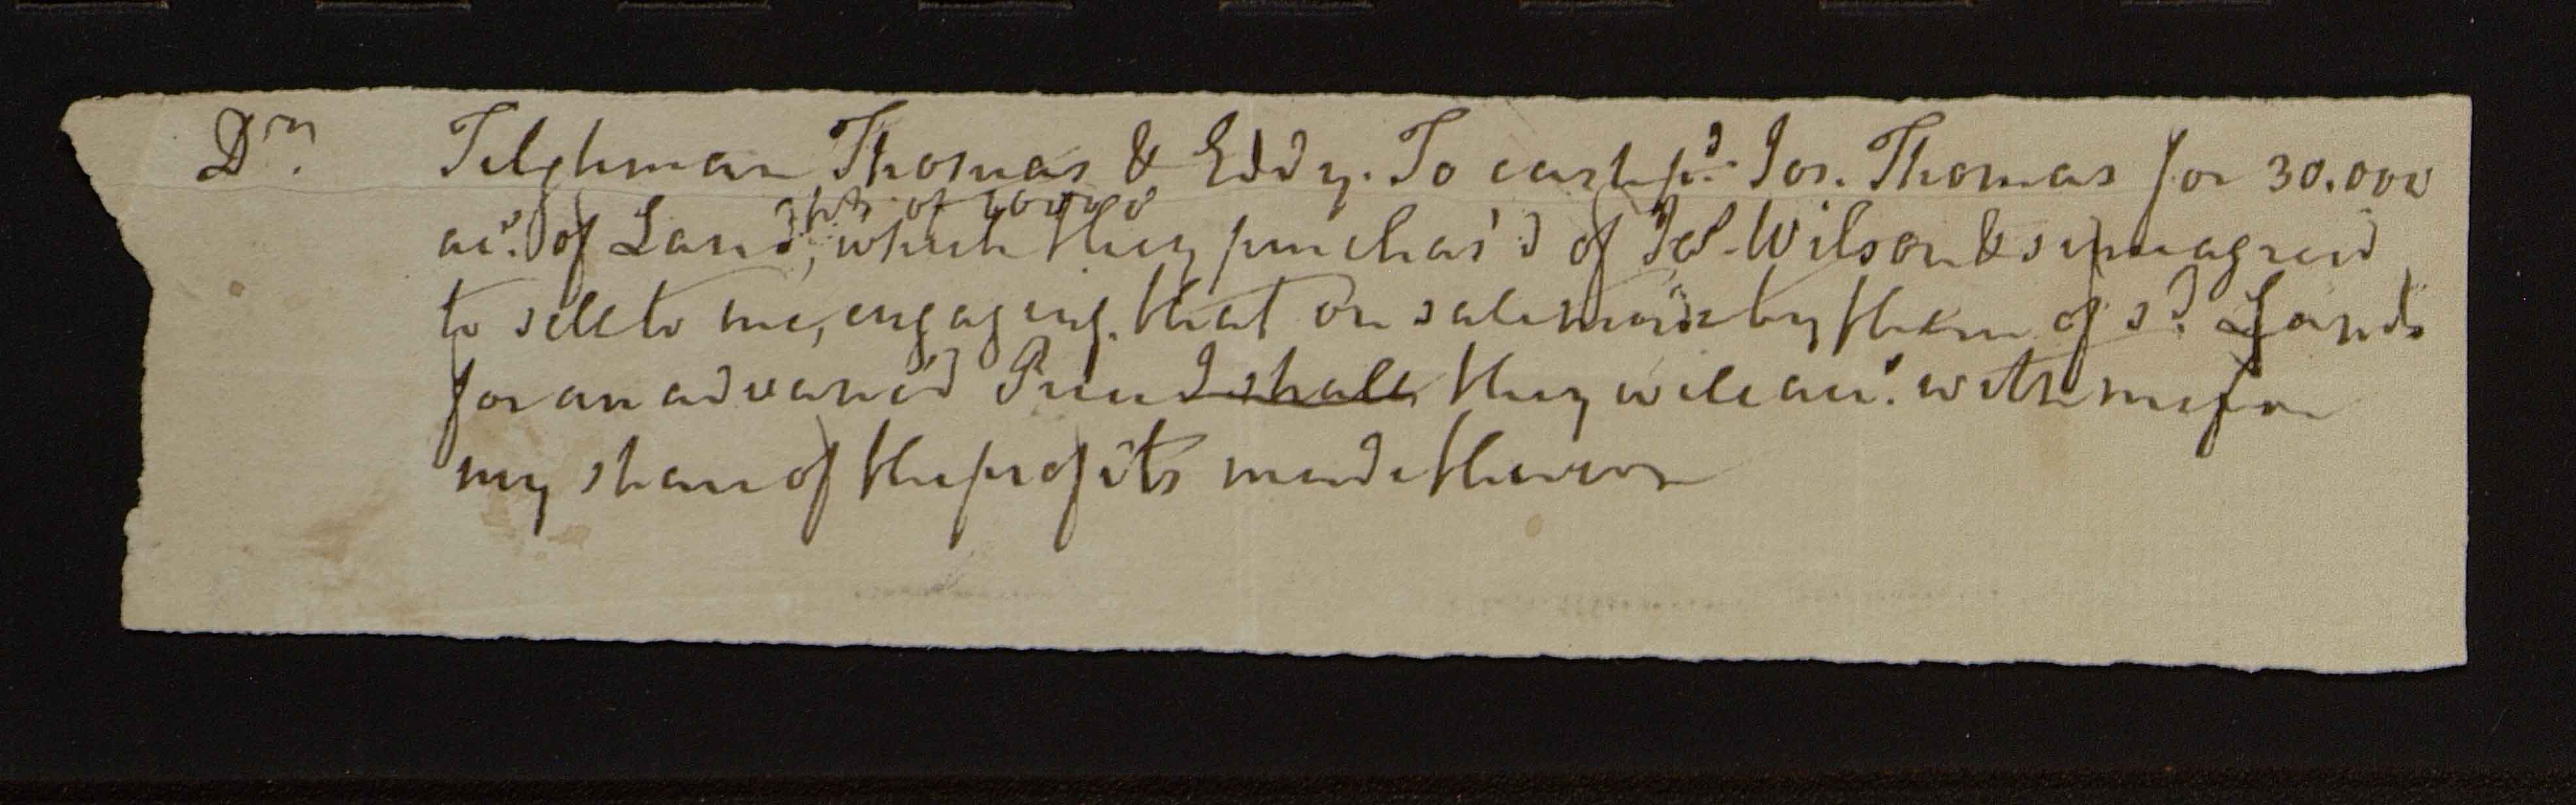 Dr. Tilghman Thomas & Eddy. To cash pd. Jos. Thomas for 30.000
pts of 60000
acs. of Land, which they purchas'd of Jas. Wilson & since agreed
to sell to me, engaging, that on sale made by them of sd. Lands
for an advanced Price I shall they will acct. with me for
my share of the profits made thereon